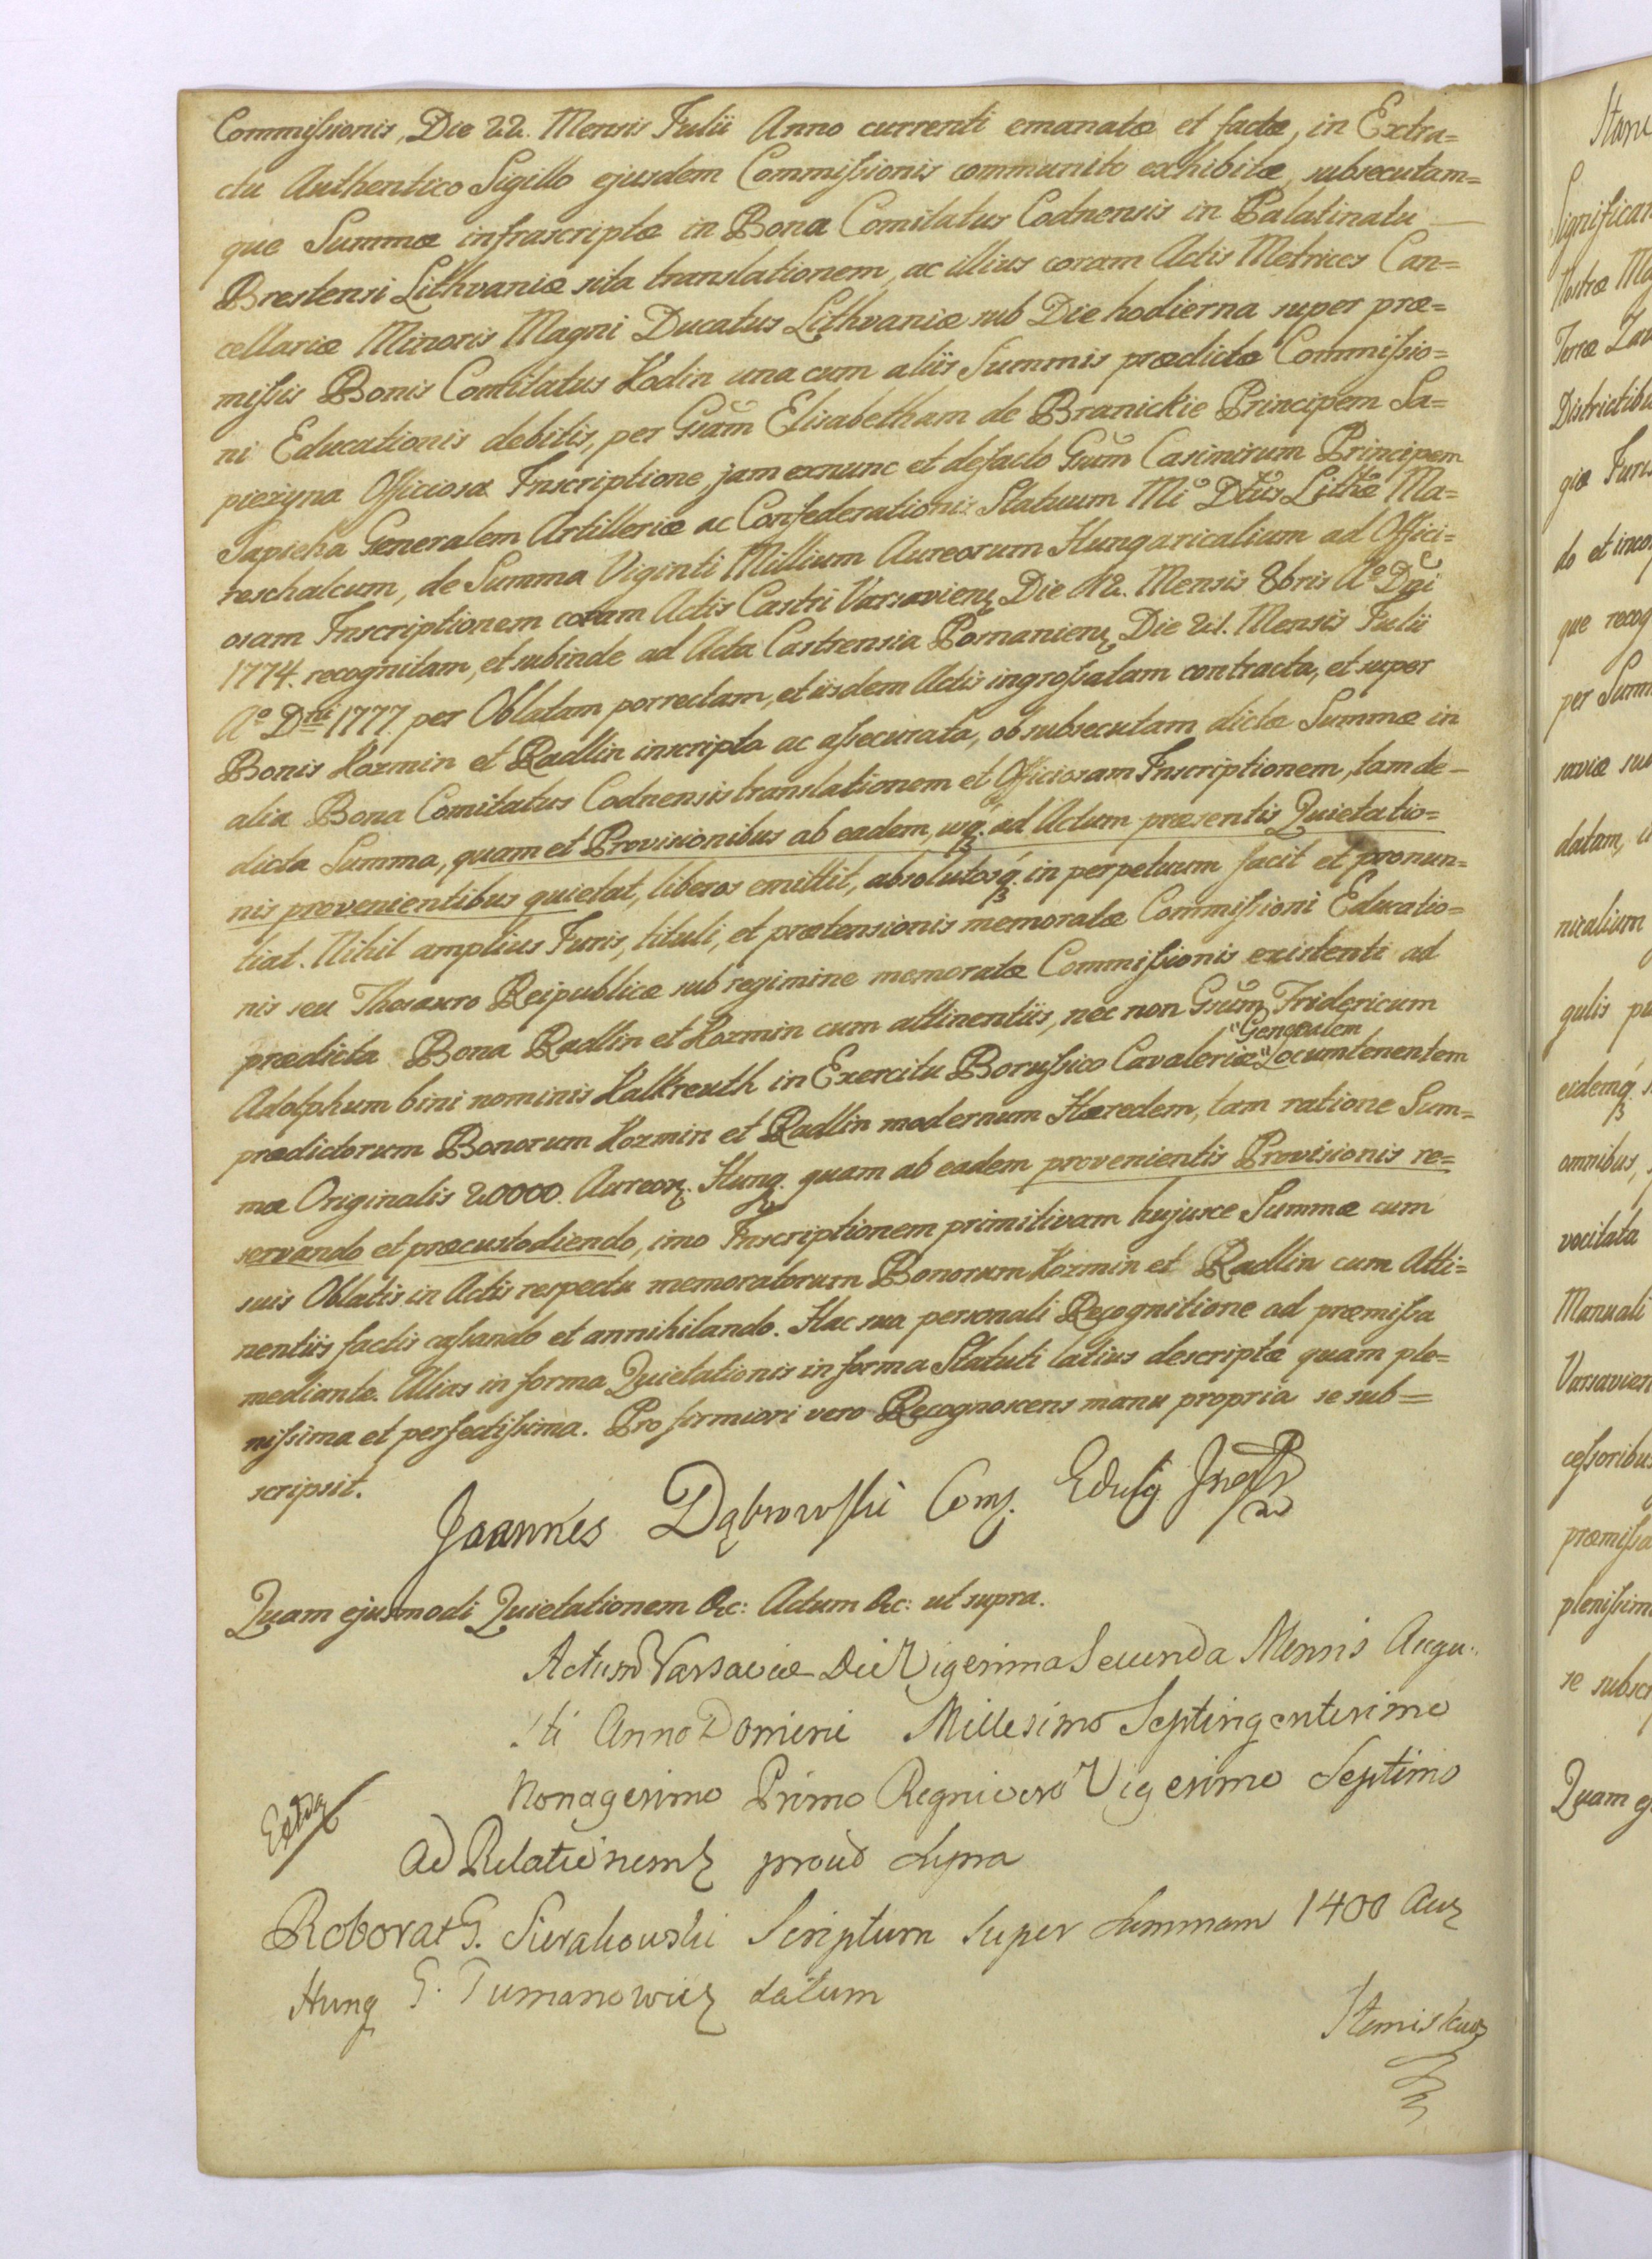 Commissionis, Die 22. Mensis Julii Anno currenti emanatæ et factæ, in Extra=
ctu Authentico Sigillo ejusdem Commissionis communito exhibitæ, subsecutam=
que Summæ infrascriptæ in Bona Comitatus Codnensis in Palatinatu
Brestensi Lithvaniæ sita translationem, ac illius coram Actis Metrices Can=
cellariæ Minoris Magni Ducatus Lithvaniæ sub Die hodierna super præ=
missis Bonis Comitatus Kodin una cum aliis Summis prædictæ Commissio=
ni Educationis debitis, per Gsam Elisabetham de Branickie Principem Sa=
pieżyna Officiosa Inscriptione, jam exnunc et defacto Gsum Casimirum Principem
Sapieha Generalem Artilleriæ ac Confederationis Statuum Mi Dtus Lithæ Ma=
reschalcum, de Summa Viginti Millium Aureorum Hungaricalium ad Offici=
osam Inscriptionem coram Actis Castri Varsavienʒ Die 12. Mensis 8bris Aº Dni
1774. recognitam, et subinde ad Acta Castrensia Posnanienʒ Die 21. Mensis Julii
Aº Dni 1777. per Oblatam porrectam, et iisdem Actis ingrossatam contracta, et super
Bonis Kozmin et Radlin inscripta ac assecurata, ob subsecutam dictæ Summæ in
alia Bona Comitatus Codnensis translationem et Officiosam Inscriptionem, tam de
dicta Summa, quam et Provisionibus ab eadem, usq. ad Actum præsentis Quietatio=
nis provenientibus quietat, liberos emittit, absolutosq. in perpetuum facit et pronun=
tiat. Nihil amplius Juris, tituli, et prætensionis memoratæ Commissioni Educatio=
nis seu Thesauro Reipublicæ sub regimine memoratæ Commissionis existenti ad
prædicta Bona Radlin et Kozmin cum attinentiis, nec non Gsum Fridericum
Adolphum bini nominis Kalkreuth in Exercitu Borussico Cavaleriæ "Generalem" Locumtenentem
prædictorum Bonorum Kozmin et Radlin modernum Hæredem, tam ratione Sum=
mæ Originalis 20000. Aureorʒ. Hung. quam ab eadem provenientis Provisionis re=
servando et præcustodiendo, imo Inscriptionem primitivam hujusce Summæ cum
suis Oblatis in Actis respectu memoratorum Bonorum Kozmin et Radlin cum Atti=
nentiis factis cassando et annihilando. Hac sua personali Recognitione ad præmissa
mediante. Alias in forma Quietationis in forma Statuti latius descriptæ quam ple=
nissima et perfectissima. Pro firmiori vero Recognoscens manu propria se sub=
scripsit.
Joannes Dąbrowski Coms. Eduk
Quam ejusmodi Quietationem &c: Actum &c: ut supra.
Actum Varsaviæ Die Vigesima Secunda Mensis Augu
sti Anno Domini Millesimo Septingentesimo
Nonagesimo Primo Regni vero Vigesimo Septimo
Ad Relationemʒ proud supra
Roborat G. Sierakowski Scriptum super summam 1400 Aurʒ
Hung G. Tumanowicz datum